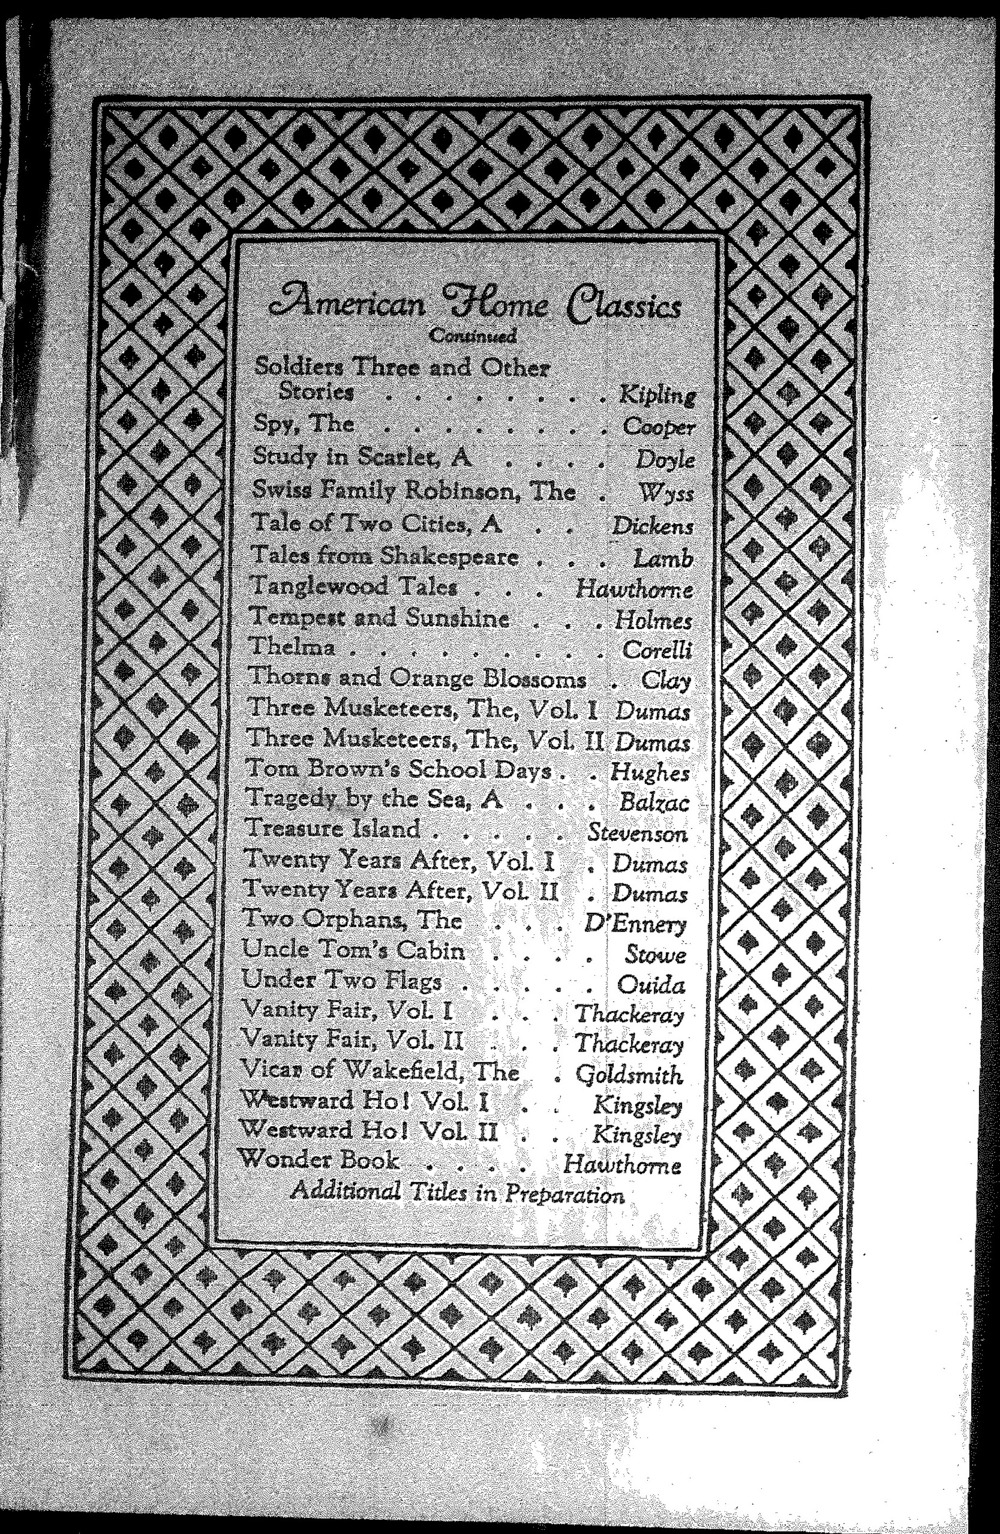 American Home Classics
Continued
Soldiers Three and Other
Stories . . . . . . . . Kipling
Spy, The . . . . . . . . Cooper
Study in Scarlet, A . . . . Doyle
Swiss Family Robinson, The . Wyss
Tale of Two Cities, A . . Dickens
Tales from Shakespeare . . . Lamb
Tanglewood Tales . . . Hawthorne
Tempest and Sunshine . . . Holmes
Thelma . . . . . . . . . Corelli
Thorns and Orange Blossoms . Clay
Three Musketeers, The, Vol. I Dumas
Three Musketeers, The, Vol. II Dumas
Tom Brown's School Days . . Hughes
Tragedy by the Sea, A . . . Balzac
Treasure Island . . . . . Stevenson
Twenty Years After, Vol. I . Dumas
Twenty Years After, Vol. II . Dumas
Two Orphans, The . . . D'Ennery
Uncle Tom's Cabin . . . . Stowe
Under Two Flags . . . . . Ouida
Vanity Fair, Vol. I . . . Thackeray
Vanity Fair, Vol. II . . . Thackeray
Vicar of Wakefield, The . Goldsmith
Westward Ho! Vol. I . . Kingsley
Westward Ho! Vol. II . . Kingsley
Wonder Book . . . . Hawthorne
Additional Titles in Preparation